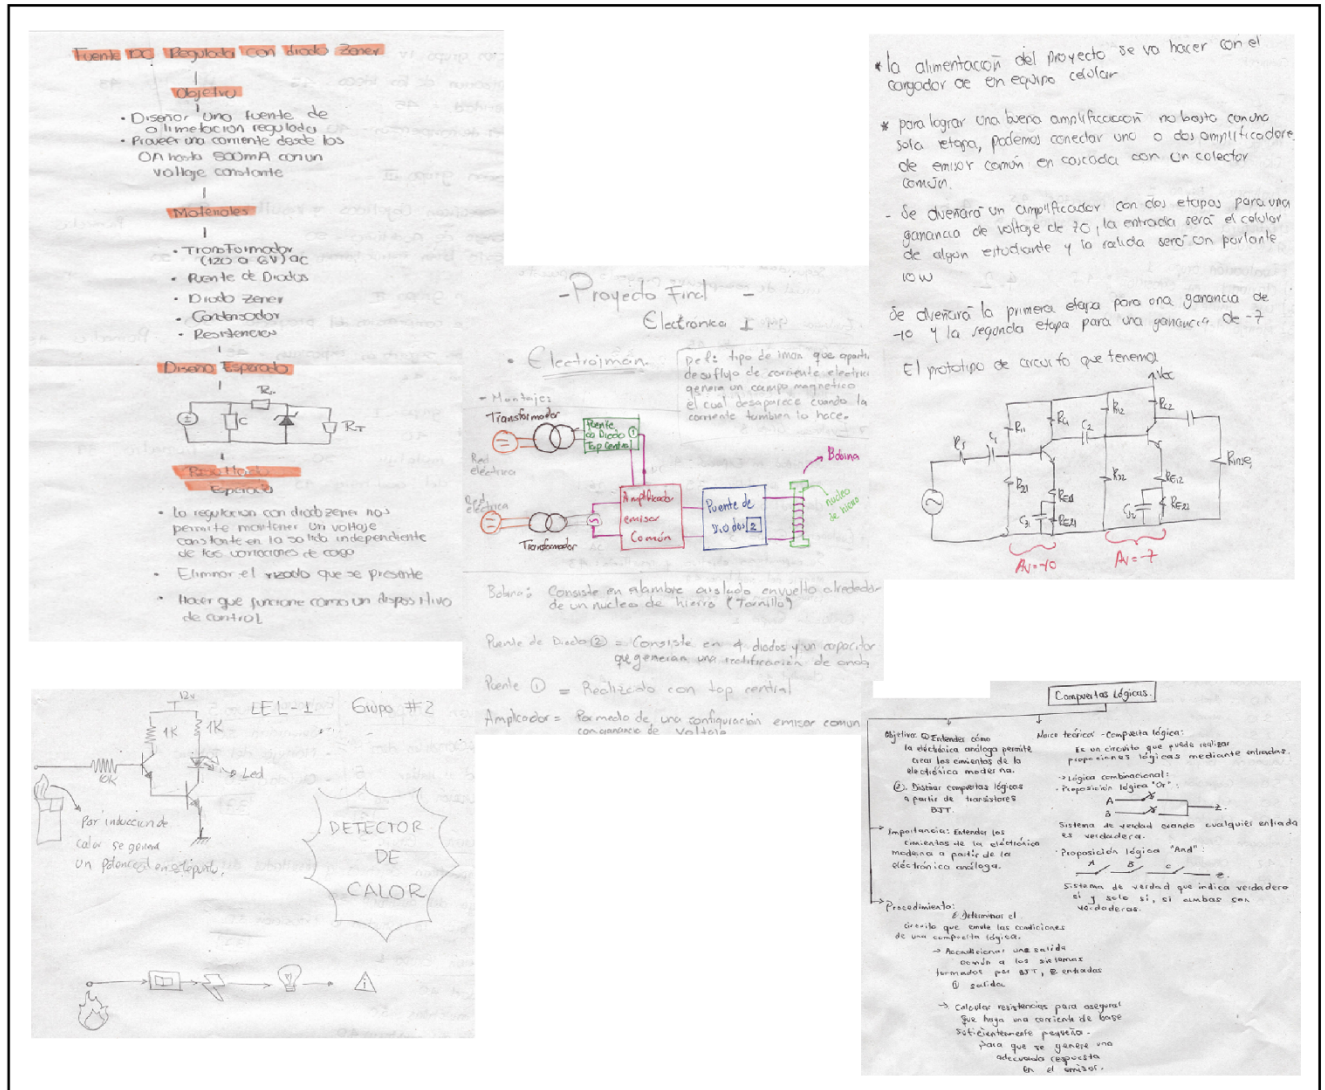 Fuente DC Regulada con diodo Zener
Objetivo
• Diseñar una fuente de
alimetacion regulada
• Proveer una corriente desde los
0A hasta 500mA con un
voltaje constante
Materiales
• Transformador
(120 a 6V) ac
• Puente de Diodos
• Diodo Zener
• Condensador
• Resistencias
Diseño Esperado
C
RT
Esperado
• La regulacion con diodo zener nos
permite mantener un voltaje
constante en la salida independiente
de las variaciones de carga
• Eliminar el rizado que se presente
• Hacer que funcione como un dispositivo
de control
- Proyecto Final -
Electronica I
• Electroimán.
Def: tipo de iman que
flujo de corriente
genera un campo magnetico
el cual desaparece cuando la
corriente tambien lo hace.
- Montajes
Transformador
Puente
Diodo ①
Tap Central
Red
eléctrica
Red
eléctrica
Transformador
Amplificador
emisor
Común
Puente de
Diodos 2
Bobina
núcleo
de hierro
Bobina: Consiste en alambre aislado envuelto alrededor
de un nucleo de hierro (Tornillo)
Puente de Diodo ② = Consiste en 4 diodos y un capacitor
que generan una rectificación de onda
Puente ① = Realizado con tap central
Por medio de una configuración emisor comun
con ganancia de Voltaje
* la alimentación del proyecto se va hacer con el
cargador de en equipo celular
* para lograr una buena amplificación no basta con una
sola etapa, podemos conectar uno o dos amplificadore
de emisor común en cascada con un colector
común.
- Se diseñará un amplificador con dos etapas para una
ganancia de voltaje de 70, la entrada será el celular
de algun estudiante y la salida será un parlante
10 w
Se diseñará la primera etapa para una ganancia de
-10 y la segunda etapa para una ganancia de -7
El prototipo de circuito que tenemos
Vcc
C2
Av=-10
Av=-7
12v
LEL-1
Grupo #2
1K
1K
Led
10K
Por induccion de
calor se genera
un potencial
DETECTOR
DE
CALOR
Compuertas Lógicas.
Objetivo: ① Entender cómo
la eléctrónica análoga permite
crear los cimientos de la
eléctrónica moderna.
②. Diseñar compuertas lógicas
a partir de transistores
BJT.
Importancia: Entender los
cimientos de la eléctrónica
moderna a partir de la
eléctrónica análoga.
Procedimiento:
Determinar el
circuito que emule las condiciones
de una compuerta lógica.
→ Acondicionar una salida
común a los sistemas
formados por BJT, 2 entradas
① salida
→ Calcular resistencias para asegurar
que haya una corriente de base
suficientemente pequeña.
para que se genere una
adecuada respuesta
en el emisor.
Marco teórico - Compuerta lógica:
Es un circuito que puede realizar
proposiciones lógicas mediante entradas.
→ Lógica combinacional:
- Proposición lógica "Or":
A
B
Z.
Sistema de verdad cuando cualquier entrada
es verdadera.
- Proposición lógica "And":
A B C
Sistema de verdad que indica verdadero
si y solo si, si ambas son
verdaderas.